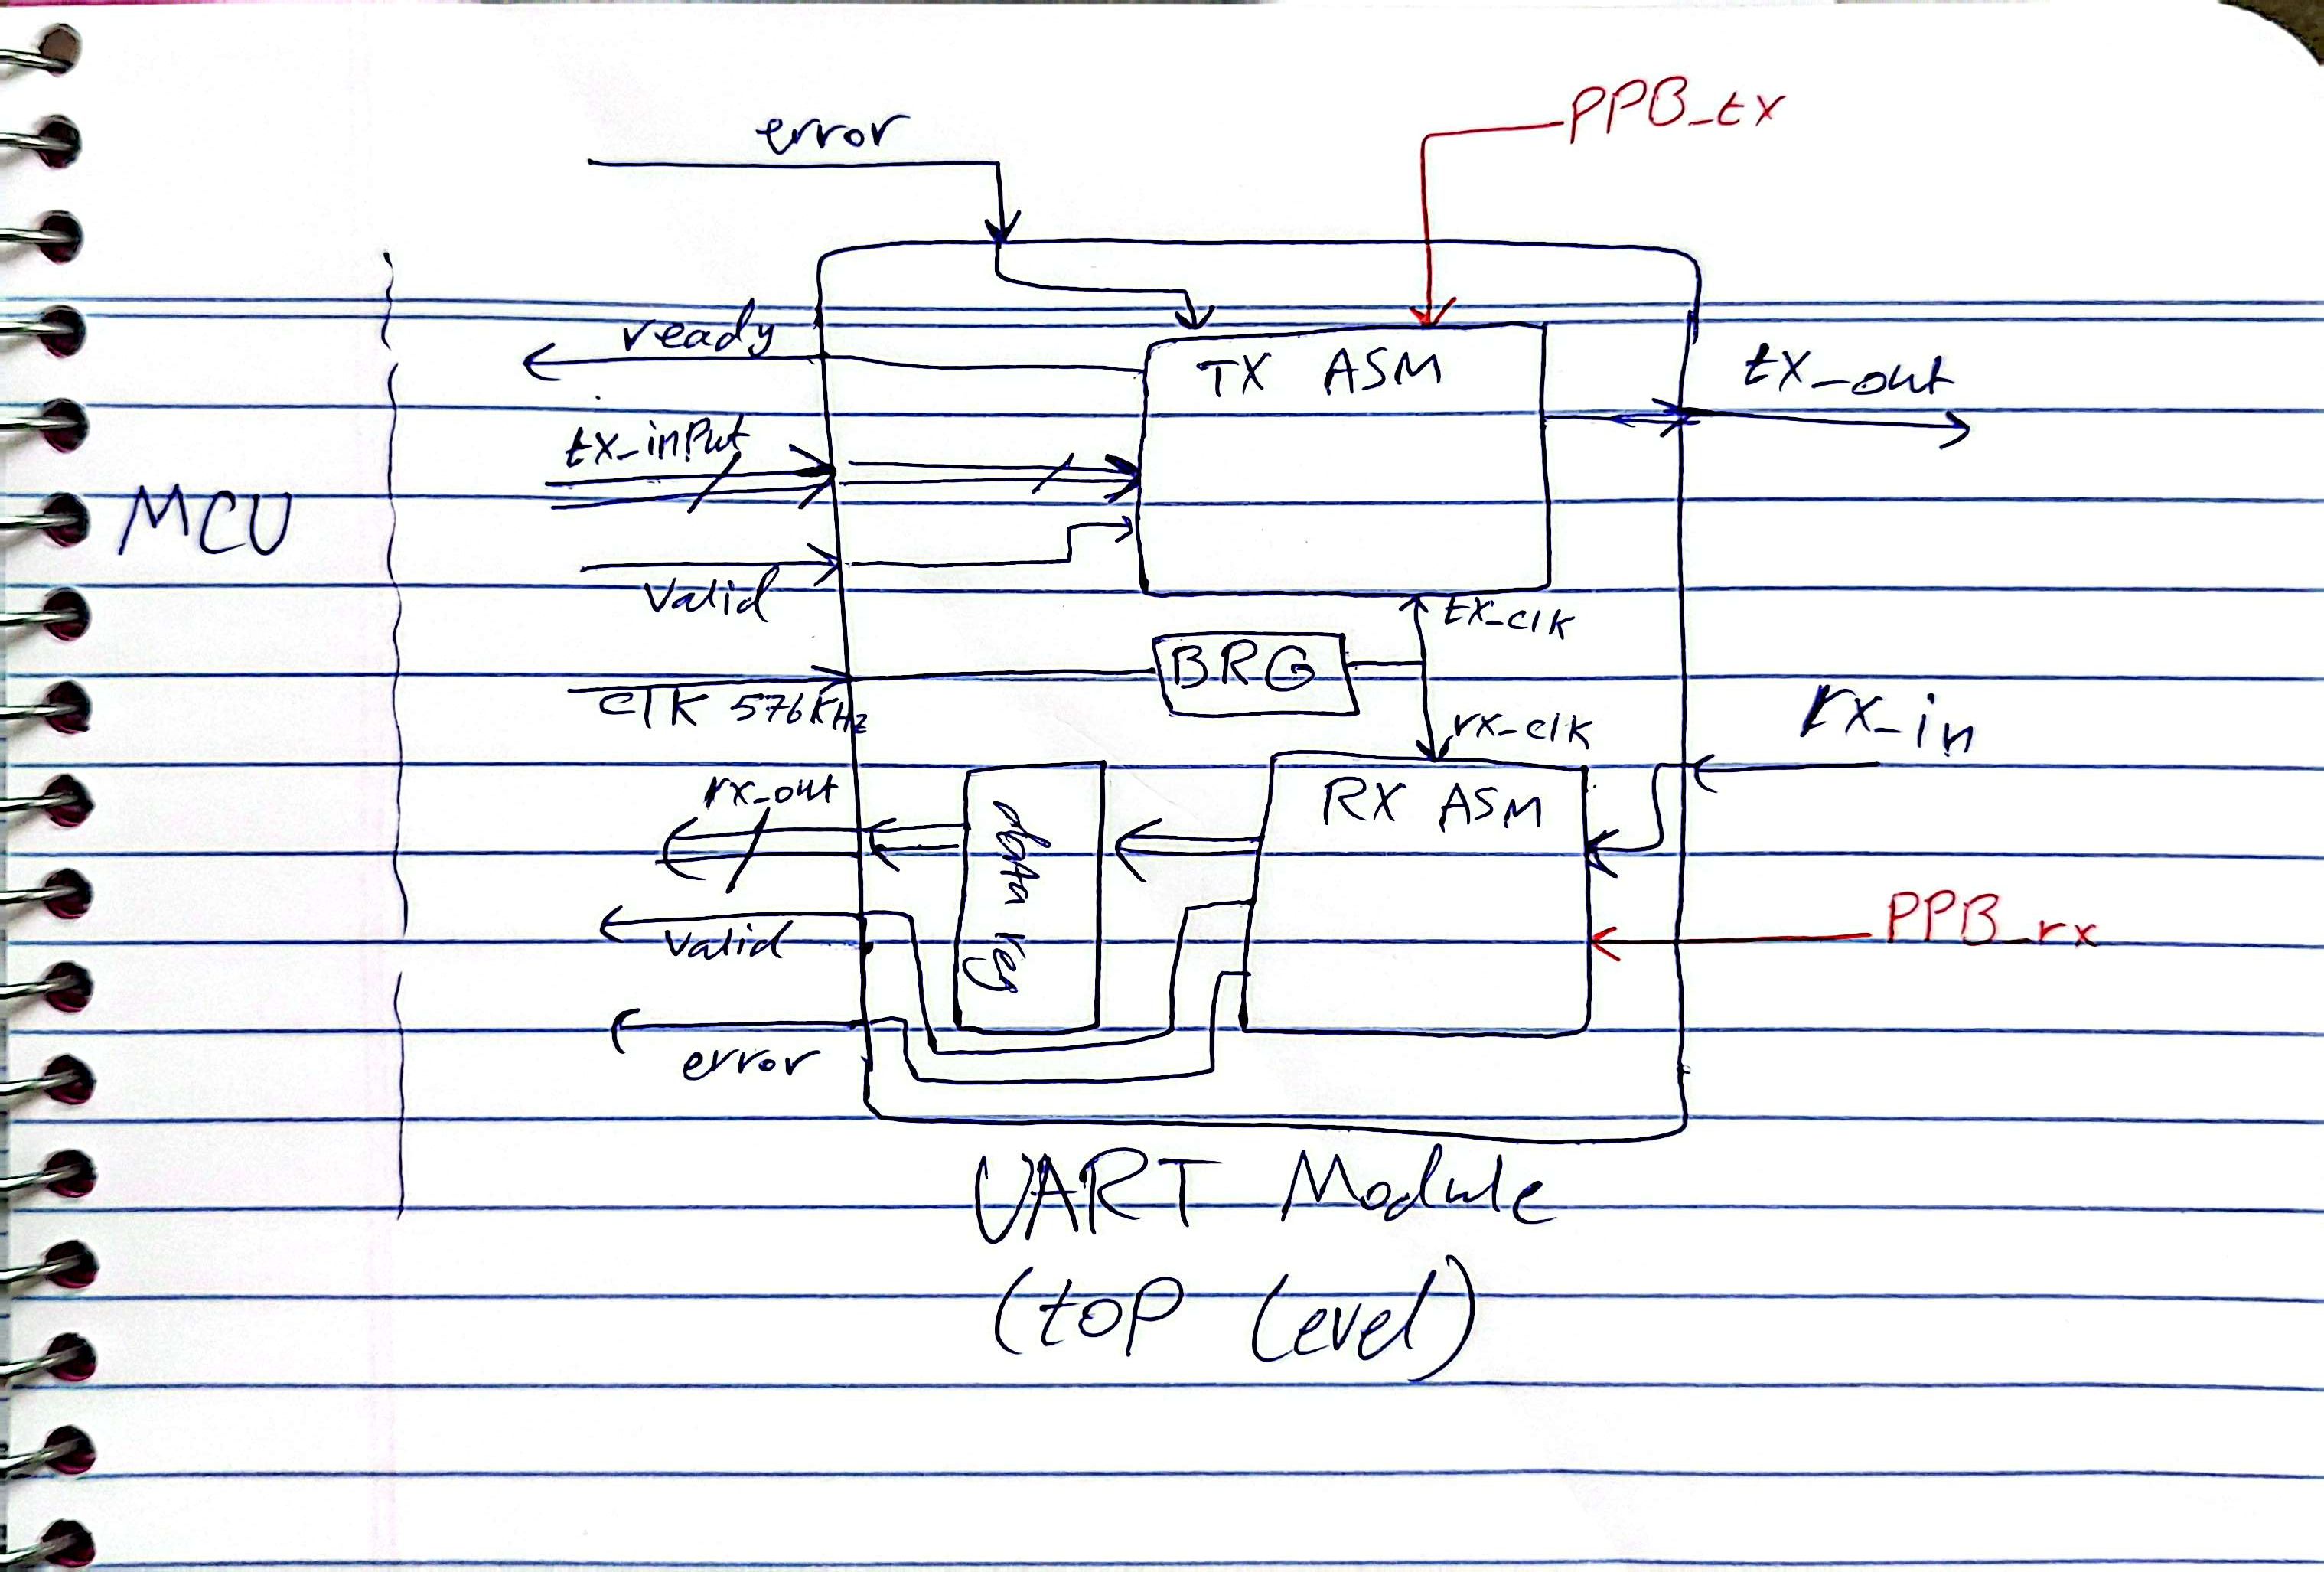 error
PPB_tx
ready
TX ASM
tx_out
tx_inPut
MCU
Valid
tx_clk
BRG
clK 576KHz
rx_clk
rx_in
rx_out
data reg
RX ASM
valid
PPB_rx
error
UART Module
(toP Level)